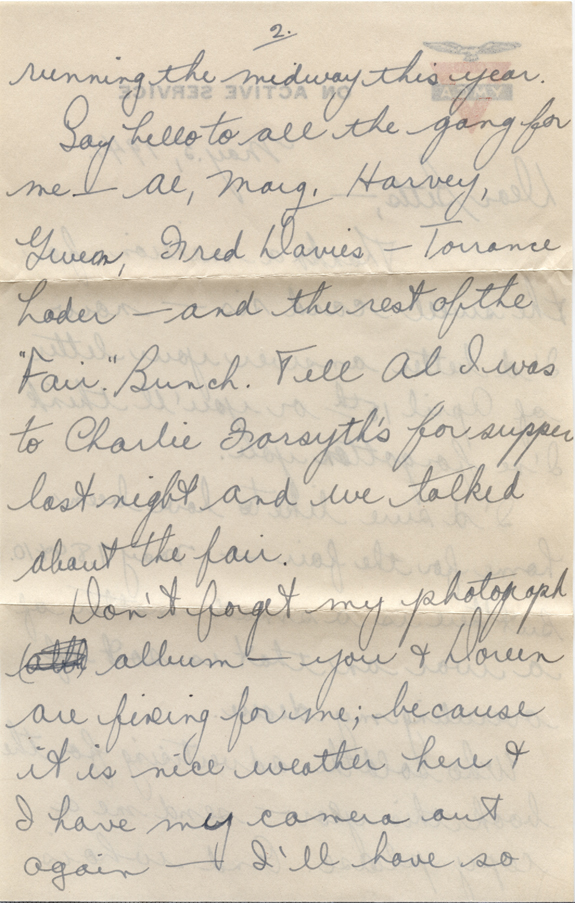 2.
running the midway this year.
Say hello to all the gang for
me — Al, Marg, Harvey,
Gwen, Fred Davies — Torrance
Loder — and the rest of the
"Fair." Bunch. Tell Al I was
to Charlie Forsyth's for supper
last night and we talked
about the fair.
Don't forget my photograph
album — you & Doreen
are fixing for me; because
it is nice weather here &
I have my camera out
again — I'll have so
ON ACTIVE SERVICE
YMCA